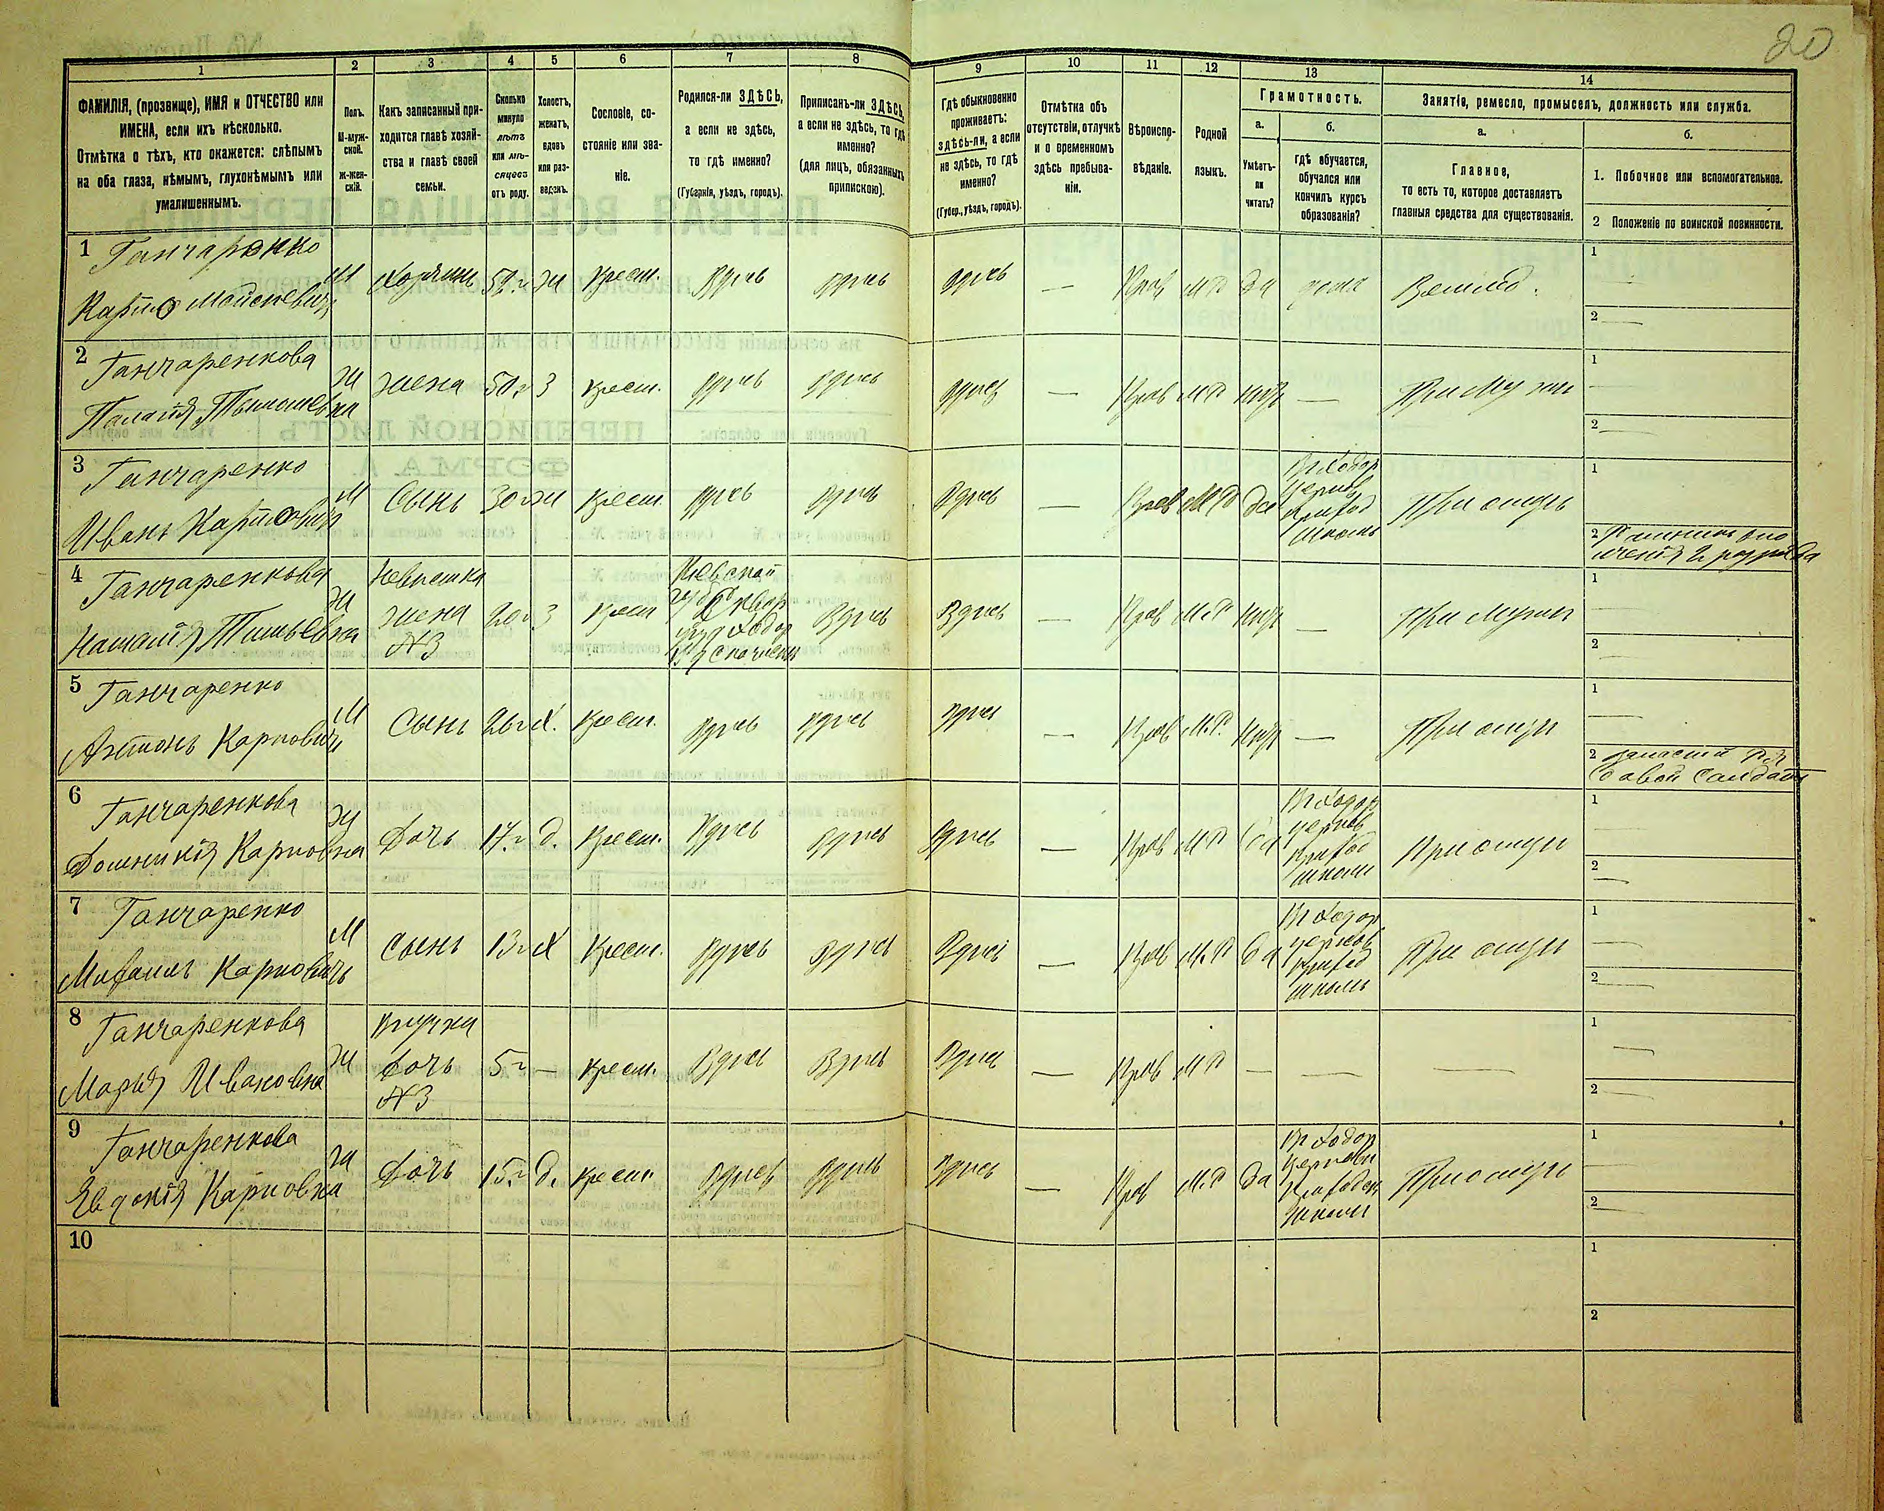 20
1
2
3
4
5
6
7
8
9
10
11
12
13
14
ФАМИЛІЯ, (прозвище), ИМЯ и ОТЧЕСТВО или
ИМЕНА, если ихъ нѣсколько.
Отмѣтка о тѣхъ, кто окажется: слѣпымъ
на оба глаза, нѣмымъ, глухонѣмымъ или
умалишеннымъ.
Полъ.
М-муж-
ской.
ж-жен-
скій.
Какъ записанный при-
ходится главѣ хозяй-
ства и главѣ своей
семьи.
Сколько
минуло
лѣтъ
или мѣ-
сяцевъ
отъ роду.
Холостъ,
женатъ,
вдовъ
или раз-
веденъ.
Сословіе, со-
стояніе или зва-
ніе.
Родился-ли ЗДѢСЬ,
а если не здѣсь,
то гдѣ именно?
(Губернія, уѣздъ, городъ).
Приписанъ-ли ЗДѢСЬ,
а если не здѣсь, то гдѣ
именно?
(для лицъ, обязанныхъ
припискою).
Гдѣ обыкновенно
проживаетъ:
здѣсь-ли, а если
не здѣсь, то гдѣ
именно?
(Губер., уѣздъ, городъ).
Отмѣтка объ
отсутствіи, отлучкѣ
и о временномъ
здѣсь пребыва-
ніи.
Вѣроиспо-
вѣданіе.
Родной
языкъ.
Грамотность.
а.
Умѣетъ-
ли
читать?
б.
гдѣ обучается,
обучался или
кончилъ курсъ
образованія?
Занятіе, ремесло, промыселъ, должность или служба.
а.
Главное,
то есть то, которое доставляетъ
главныя средства для существованія.
б.
1. Побочное или вспомогательное.
2 Положеніе по воинской повинности.
1 Ганчаренко
Карпо
м Хозяинъ 59 г. ж Крест. Здѣсь здѣсь здѣсь — Прав М Р да дома
1 —
2 —
2 Ганчаренкова
ж жена 50 г 3 крест. здѣсь здѣсь здѣсь — Прав М Р нѣт — При мужи
1 —
2 —
3 Ганчаренко
Иванъ Карповичъ
м Сынъ 30 г ж крест. здѣсь здѣсь Здѣсь — Прав М Р да
В Ходор
церков
приход
школѣ
При отцѣ
1
2 Ратникъ опо
лченія 2 разряда
4 Ганчаренкова
ж Невѣстка
жена
№3
20 г. 3 крест
Кіевской
губ Сквир
Здѣсь Здѣсь — Прав М Р нѣт — При мужи
1 —
2 —
5 Ганчаренко
Антонъ Карповичъ
м Сынъ 26 г х. крест. здѣсь здѣсь здѣсь — Прав М.Р. нѣт — При отцѣ
1 —
2 запасной ря
довой солдатъ
6 Ганчаренкова
Домникія Карповна
ж Дочь 17 г. д. Крест. Здѣсь здѣсь Здѣсь — Прав М Р да
В Ходор
церков
приход
школѣ
При отцѣ
1 —
2 —
7 Ганчаренко
Михаилъ Карповичъ
м сынъ 13 г х Крест. здѣсь здѣсь Здѣсь — Прав М. Р да
В Ходор
церков
приход
школѣ
При отцѣ
1 —
2 —
8 Ганчаренкова
Марья Ивановна
ж внучка
дочь
№3
5 г — крест. Здѣсь Здѣсь Здѣсь — Прав М Р — — —
1 —
2 —
9 Ганчаренкова
Явдокія Карповна
ж Дочь 15 г. д. крест. здѣсь здѣсь Здѣсь — Прав М. Р да
В Ходор
церковн
приходск
школѣ
При отцѣ
1 —
2 —
10
1
2